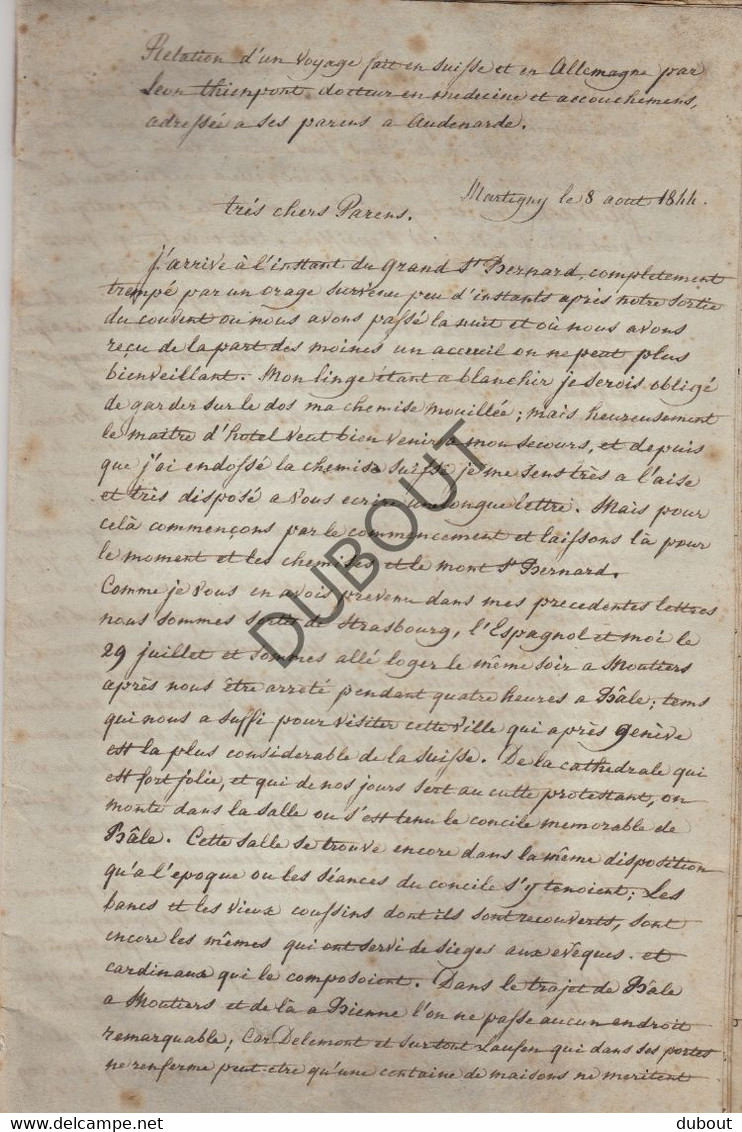 Relation d'un voyage fait en Suisse et en Allemagne par
Leon Thienpont docteur en medecine et accouchemens,
adressée a ses parens a Audenarde.
Martigny le 8 aout 1844.
très chers Parens.
J'arrive à l'instant du Grand St Bernard, completement
trempé par un orage survenu peu d'instants après notre sortie
du couvent ou nous avons passé la nuit et où nous avons
reçu de la part des moines un acceuil on ne peut plus
bienveillant. Mon linge étant a blanchir je serois obligé
de garder sur le dos ma chemise mouillée; mais heureusement
le maitre d'hotel veut bien venir a mon secours, et depuis
que j'ai endossé la chemise suisse je me sens très a l'aise
et très disposé a vous ecrire une longue lettre. Mais pour
celà commençons par le commencement et laissons là pour
le moment et les chemises et le mont St Bernard.
Comme je vous en avois prevenu dans mes precedentes lettres
nous sommes sortis de Strasbourg, l'Espagnol et moi le
29 juillet et sommes allé loger le même soir a Moutiers
après nous être arreté pendant quatre heures a Bâle; tems
qui nous a suffi pour visiter cette ville qui après Genève
est la plus considerable de la Suisse. De la cathedrale qui
est fort jolie, et qui de nos jours sert au culte protestant, on
monte dans la salle ou s'est tenu le concile memorable de
Bâle. Cette salle se trouve encore dans la même disposition
qu'a l'epoque ou les séances du concile s'y tenoient; Les
bancs et les vieux coussins dont ils sont recouverts, sont
encore les mêmes qui ont servi de sieges aux evêques et
cardinaux qui le composoient. Dans le trajet de Bâle
a Moutiers et de là a Bienne l'on ne passe aucun endroit
remarquable; Car Delemont et surtout Laufen qui dans ses portes
ne renferme peut etre qu'une centaine de maisons ne meritent
DUBOUT
dubout